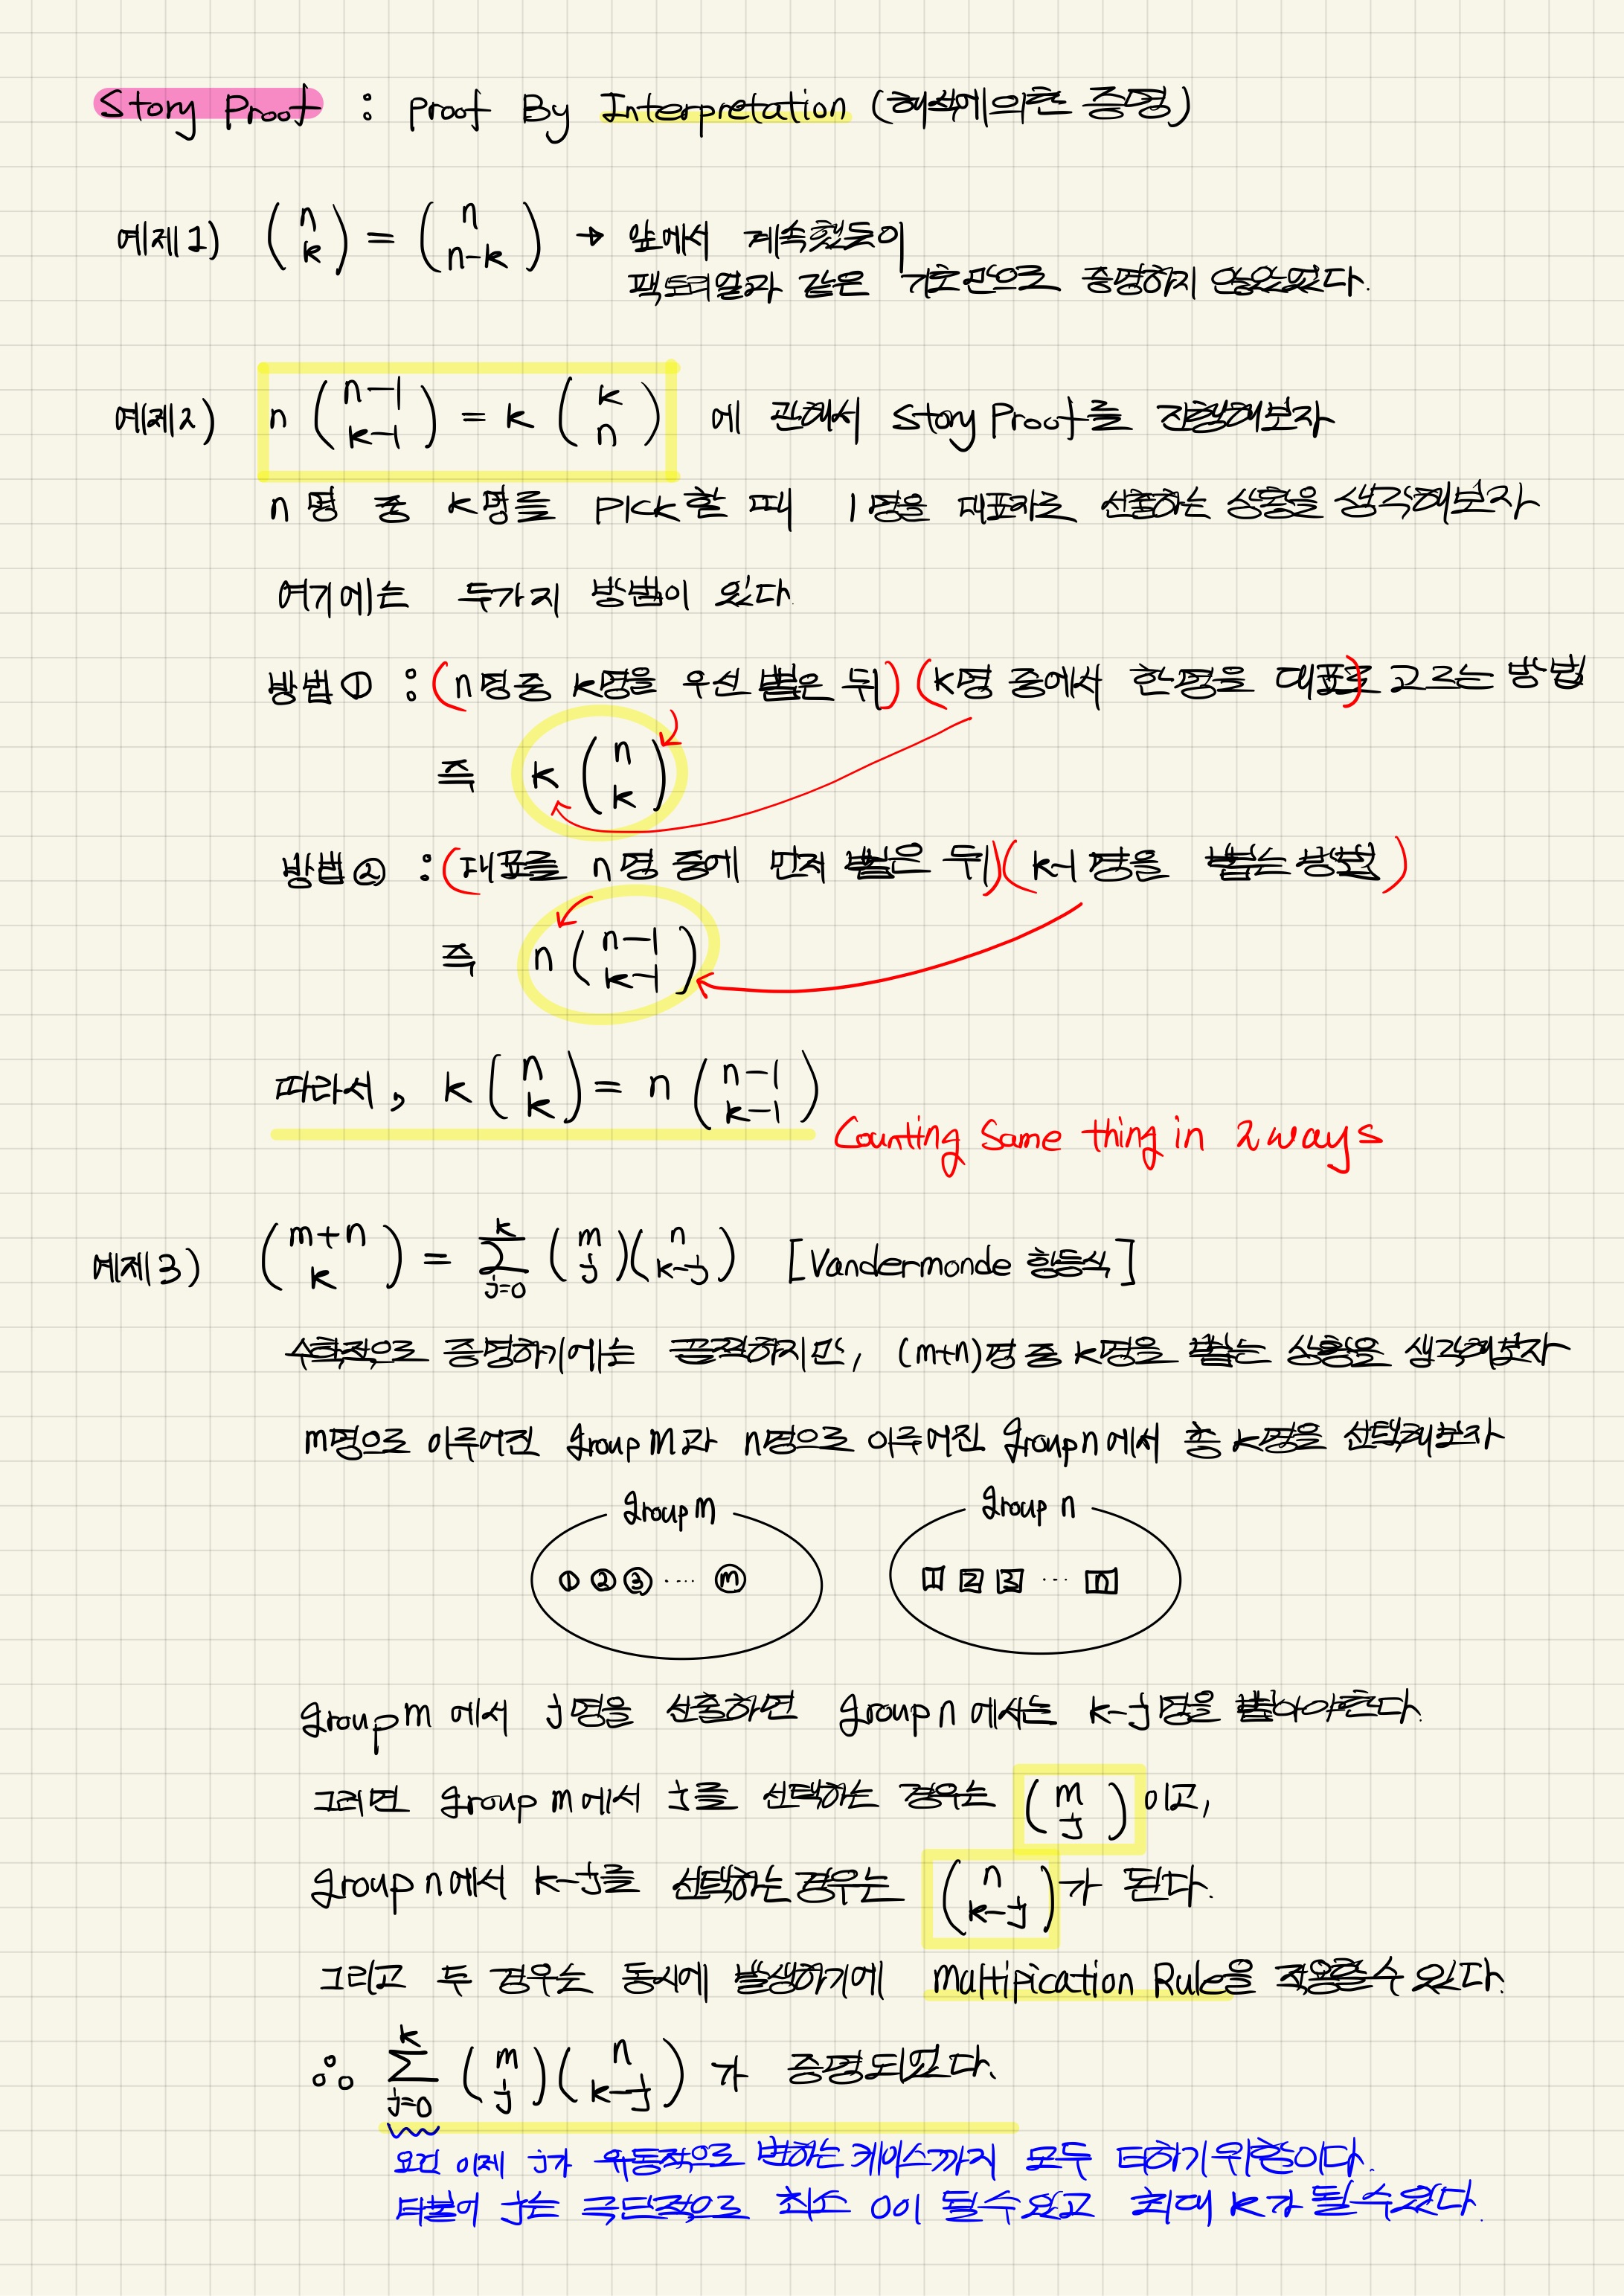 Story Proof : Proof By Interpretation (해석에의한 증명)
예제1) (n k) = (n n-k) → 앞에서 계속했듯이
팩토리얼과 같은 기호만으로 증명하지 않았었다.
예제2) n (n-1 k-1) = k (k n) 에 관해서 Story Proof를 진행해보자
n명 중 k명를 PICK할 때 1명을 대표자로 선출하는 상황을 생각해보자
여기에는 두가지 방법이 있다.
방법① : (n명중 k명을 우선 뽑은 뒤) (k명 중에서 한명을 대표)로 고르는 방법
즉 k (n k)
방법② : (대표를 n명 중에 먼저 뽑은 뒤) (k-1명을 뽑는 방법)
즉 n (n-1 k-1)
따라서, k (n k) = n (n-1 k-1)
Counting Same thing in 2 ways
예제3) (m+n k) = k Σ j=0 (m j)(n k-j) [Vandermonde 항등식]
수학적으로 증명하기에는 끔찍하지만, (m+n)명 중 k명을 뽑는 상황을 생각해보자
m명으로 이루어진 group m과 n명으로 이루어진 group n에서 총 k명을 선택해보자
group m group n
① ② ③ ···· ⓜ 1 2 3 ··· n
group m 에서 j명을 선출하면 group n 에서는 k-j명을 뽑아야한다.
그러면 group m에서 j를 선택하는 경우는 (m j) 이고,
group n에서 k-j를 선택하는 경우는 (n k-j)가 된다.
그리고 두 경우는 동시에 발생하기에 Maltipication Rule을 적용할수 있다.
∴ k Σ j=0 (m j)(n k-j) 가 증명되었다.
요건 이제 j가 유동적으로 변하는 케이스까지 모두 더하기 위함이다.
더불어 j는 극단적으로 최소 0이 될수있고 최대 k가 될수있다.